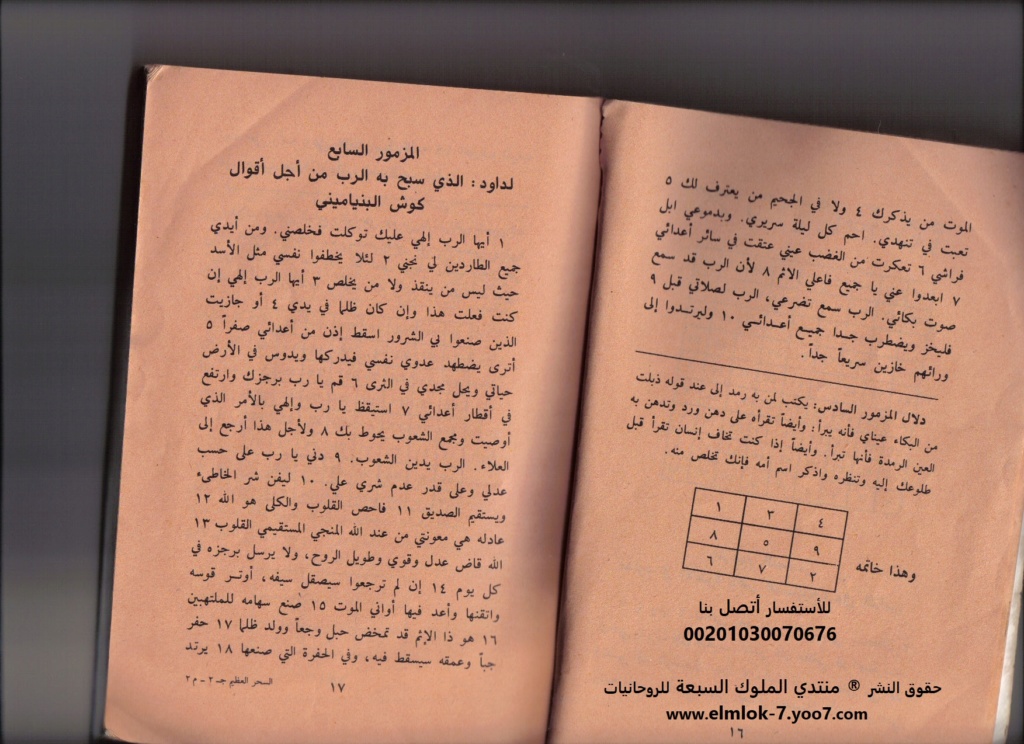 الموت من يذكرك ٤ ولا في الجحيم من يعترف لك ٥
تعبت في تنهدي. احم كل ليلة سريري. وبدموعي ابل
فراشي ٦ تعكرت من الغضب عيني عتقت في سائر أعدائي
٧ ابعدوا عني يا جميع فاعلي الاثم ٨ لأن الرب قد سمع
صوت بكائي. الرب سمع تضرعي، الرب لصلاتي قبل ٩
فليخز ويضطرب جدا جميع أعدائي ١٠ وليرتدوا إلى
ورائهم خازين سريعاً جداً.
دلال المزمور السادس: يكتب لمن به رمد إلى عند قوله ذبلت
من البكاء عيناي فأنه يبرأ: وأيضاً تقرأه على دهن ورد وتدهن به
العين الرمدة فأنها تبرأ. وأيضاً إذا كنت تخاف إنسان تقرأ قبل
طلوعك إليه وتنظره واذكر اسم أمه فإنك تخلص منه.
٤ ٣ ١
٩ ٥ ٨
٢ ٧ ٦
وهذا خاتمه
للأستفسار أتصل بنا
00201030070676
حقوق النشر ® منتدي الملوك السبعة للروحانيات
www.elmlok-7.yoo7.com
١٦
المزمور السابع
لداود: الذي سبح به الرب من أجل أقوال
كوش البنياميني
١ أيها الرب إلهي عليك توكلت فخلصني. ومن أيدي
جميع الطاردين لي نجني ٢ لئلا يخطفوا نفسي مثل الأسد
حيث ليس من ينقذ ولا من يخلص ٣ أيها الرب إلهي إن
كنت فعلت هذا وإن كان ظلما في يدي ٤ أو جازيت
الذين صنعوا بي الشرور اسقط إذن من أعدائي صفراً ٥
أترى يضطهد عدوي نفسي فيدركها ويدوس في الأرض
حياتي ويحل مجدي في الثرى ٦ قم يا رب برجزك وارتفع
في أقطار أعدائي ٧ استيقظ يا رب وإلهي بالأمر الذي
أوصيت ومجمع الشعوب يحوط بك ٨ ولأجل هذا أرجع إلى
العلاء. الرب يدين الشعوب. ٩ دني يا رب على حسب
عدلي وعلى قدر عدم شري علي. ١٠ ليفن شر الخاطىء
ويستقيم الصديق ١١ فاحص القلوب والكلى هو الله ١٢
عادله هي معونتي من عند الله المنجي المستقيمي القلوب ١٣
الله قاض عدل وقوي وطويل الروح، ولا يرسل برجزه في
كل يوم ١٤ إن لم ترجعوا سيصقل سيفه، أوتر قوسه
واتقنها وأعد فيها أواني الموت ١٥ صنع سهامه للملتهبين
١٦ هو ذا الإثم قد تمخض حبل وجعاً وولد ظلما ١٧ حفر
جباً وعمقه سيسقط فيه، وفي الحفرة التي صنعها ١٨ يرتد
السحر العظيم جـ ٢ - م ٢
١٧